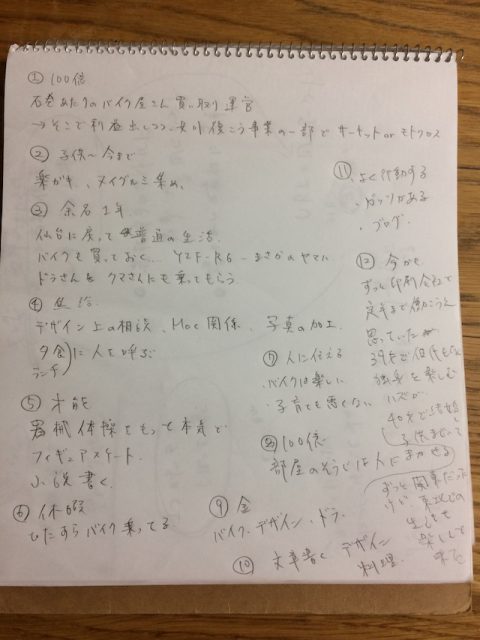 ① 100億
石巻あたりのバイク屋さん買い取り運営
→そこで利益出しつつ、女川復こう事業の一部でサーキット or モトクロス
② 子供〜今まで
楽がき、ヌイグルミ集め、
③ 余名1年
仙台に戻って普通の生活
バイクも買っておく… YZF-R6 -まさかのヤマハ
ドラさんも クマさんにも乗ってもらう
④
デザイン上の相談、HOC関係、写真の加工、
夕食
ランチ に人を呼ぶ
⑤ 才能
器械体操をもって本気で
フィギュアスケート
小説書く
⑥ 休暇
ひたすらバイク乗ってる
⑦ 人に伝える
・バイクは楽しい
・子育ても悪くない
⑧ 100億
部屋のそうじは人にまかせる
⑨ 金
バイク、デザイン、ドラ、
⑩ 文章書く デザイン
料理
⑪ ・よく行動する
・ガッツがある
・ブログ
⑫ 今から
ずっと印刷会社で
定年まで働こうと
思っていたが
39才で
独身を楽しむ
ハズが
40才で結婚
子供まで
ずっと関東だった
けど、東北での
生活を
楽しして